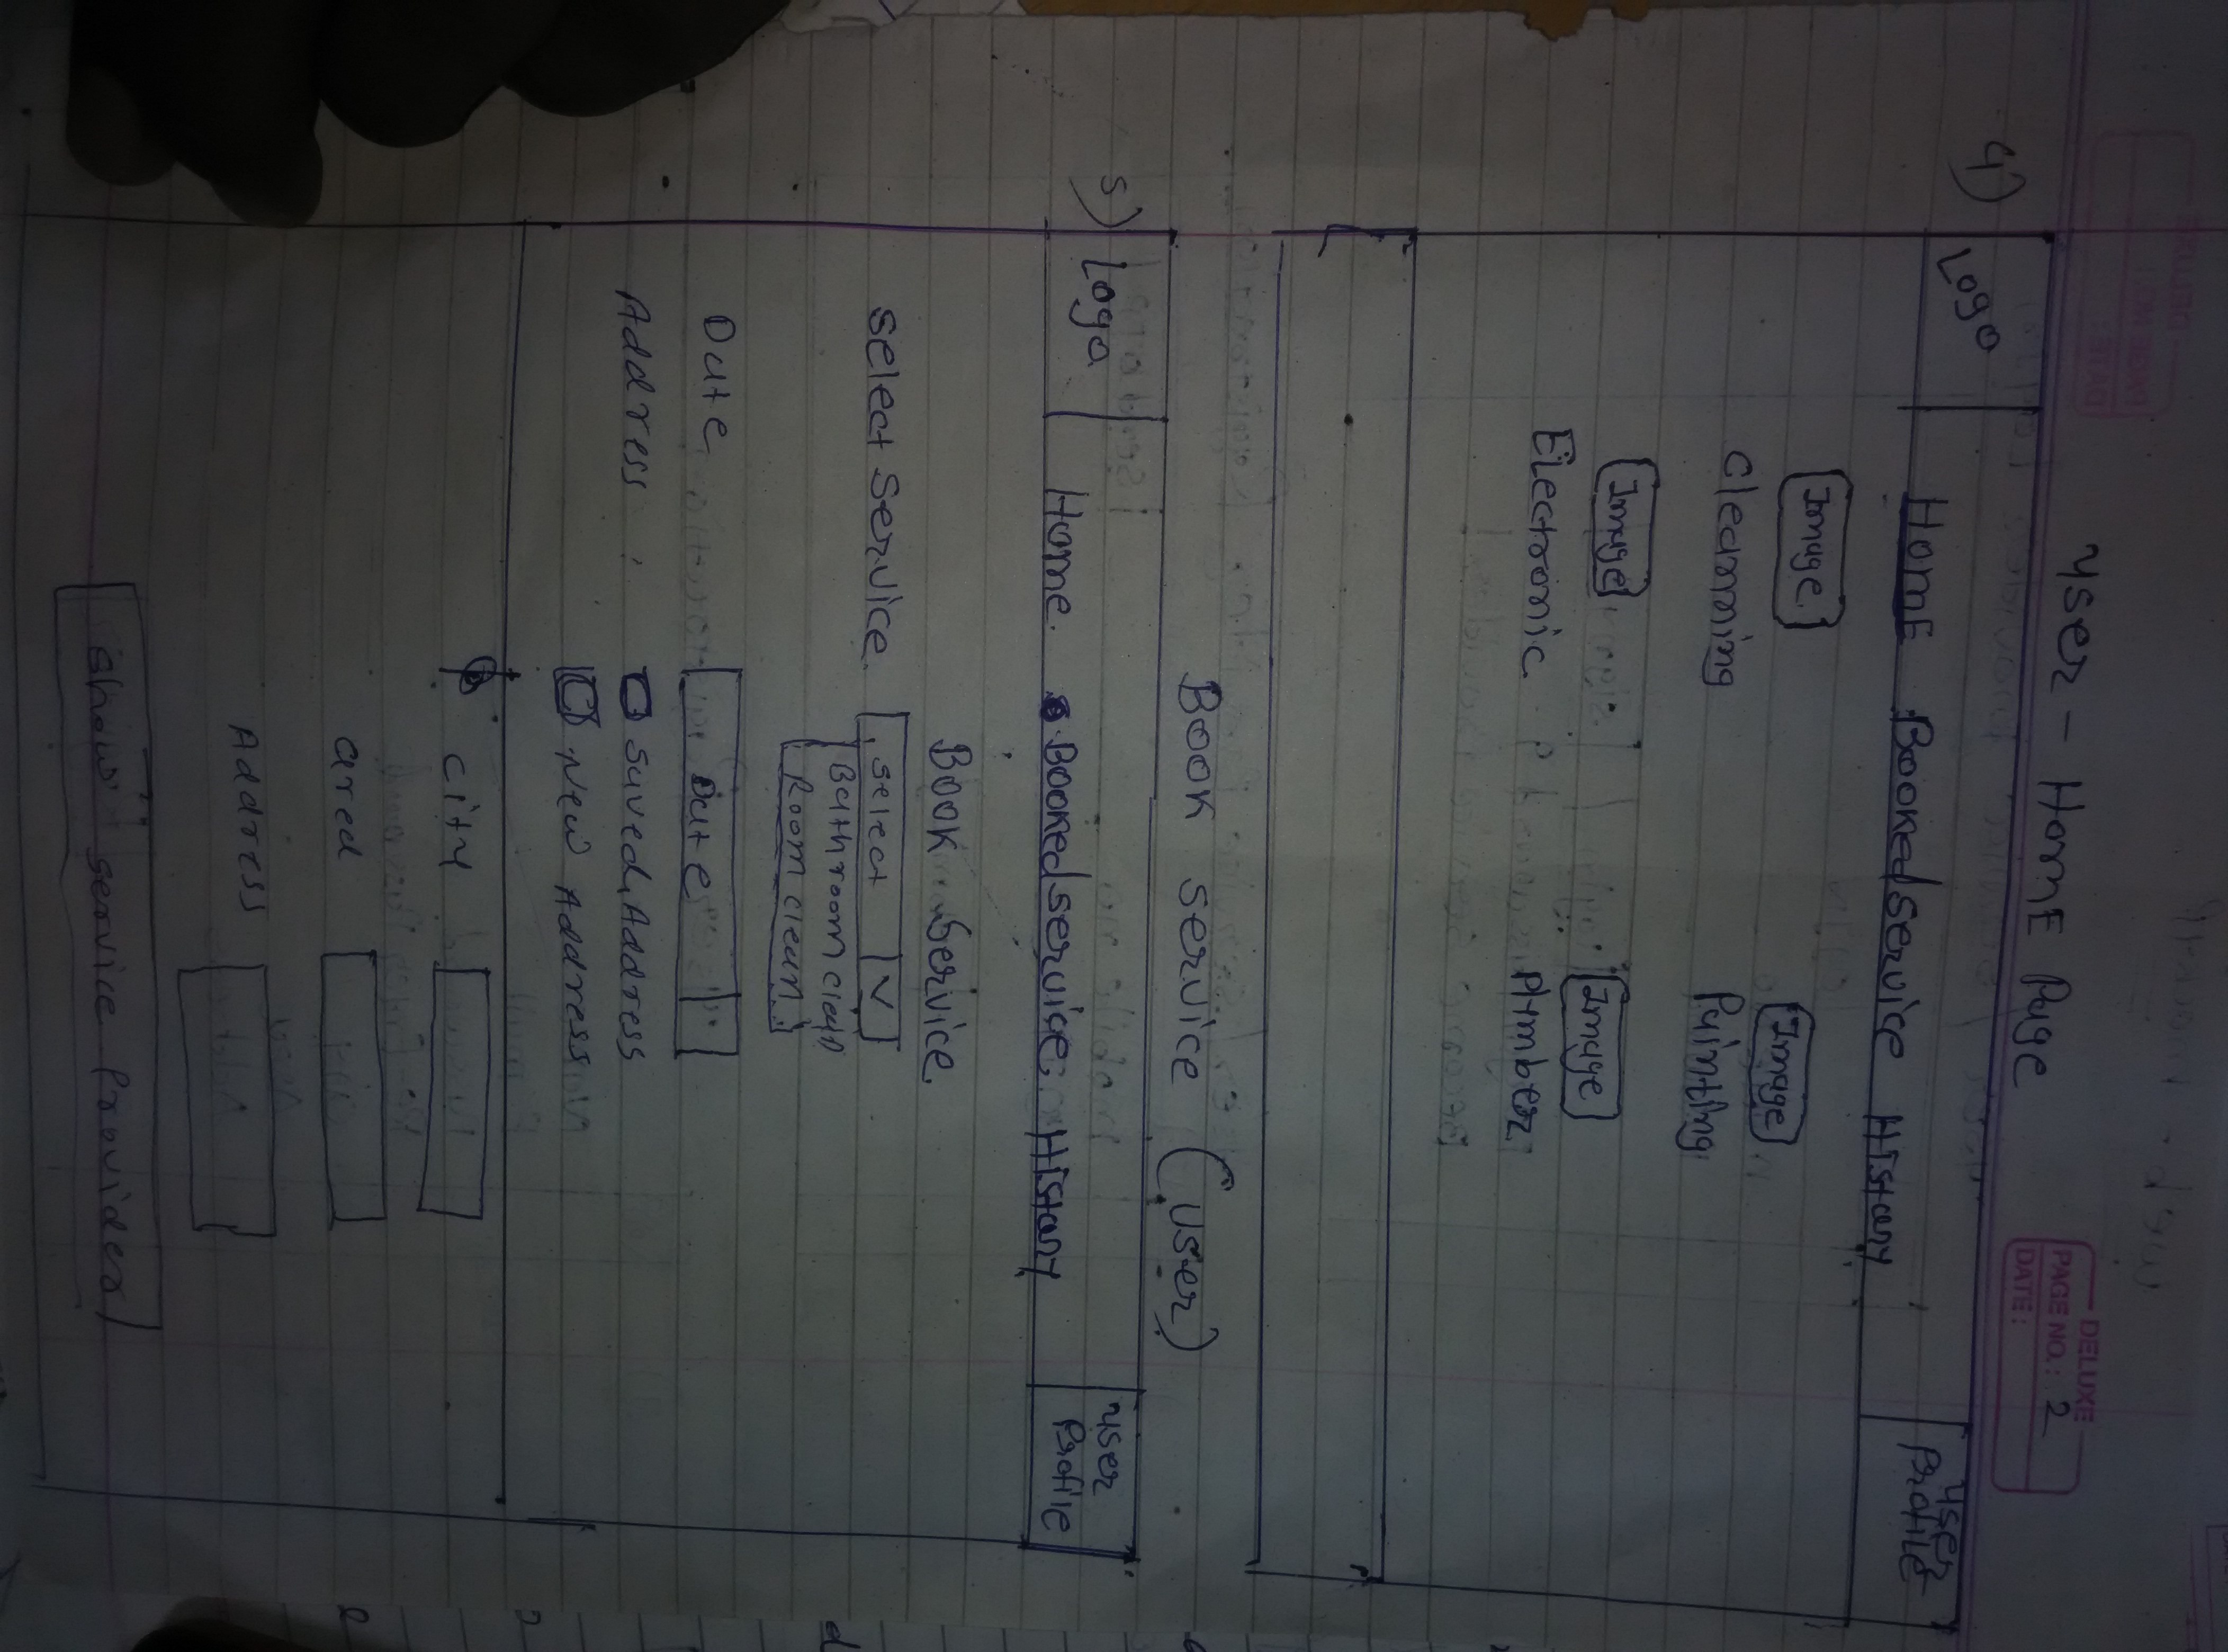 DELUXE
PAGE NO.: 2
DATE:
User - HomE Page
4)
Logo
HomE Booked service History
User Profile
Image
Image
Cleanning
Painting
Image
Image
Electronic
Plumber
Book service (User)
5)
Logo
Home. Booked service History
User Profile
Book Service.
select service
select V
Bathroom clean
Room clean
Date
Date
Address :
Saved Address
New Address
City
area
Address
Show service Provider